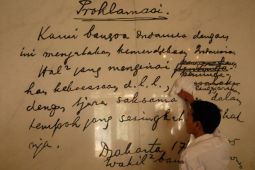 Proklamasi.
Kami bangsa Indonesia dengan
ini menjatakan kemerdekaan Indonesia.
Hal² jang mengenai
han kekoeasaan d.l.l.,
dengan tjara saksama dalam
tempoh jang sesingkat
nja.
Djakarta, 17
Wakil²